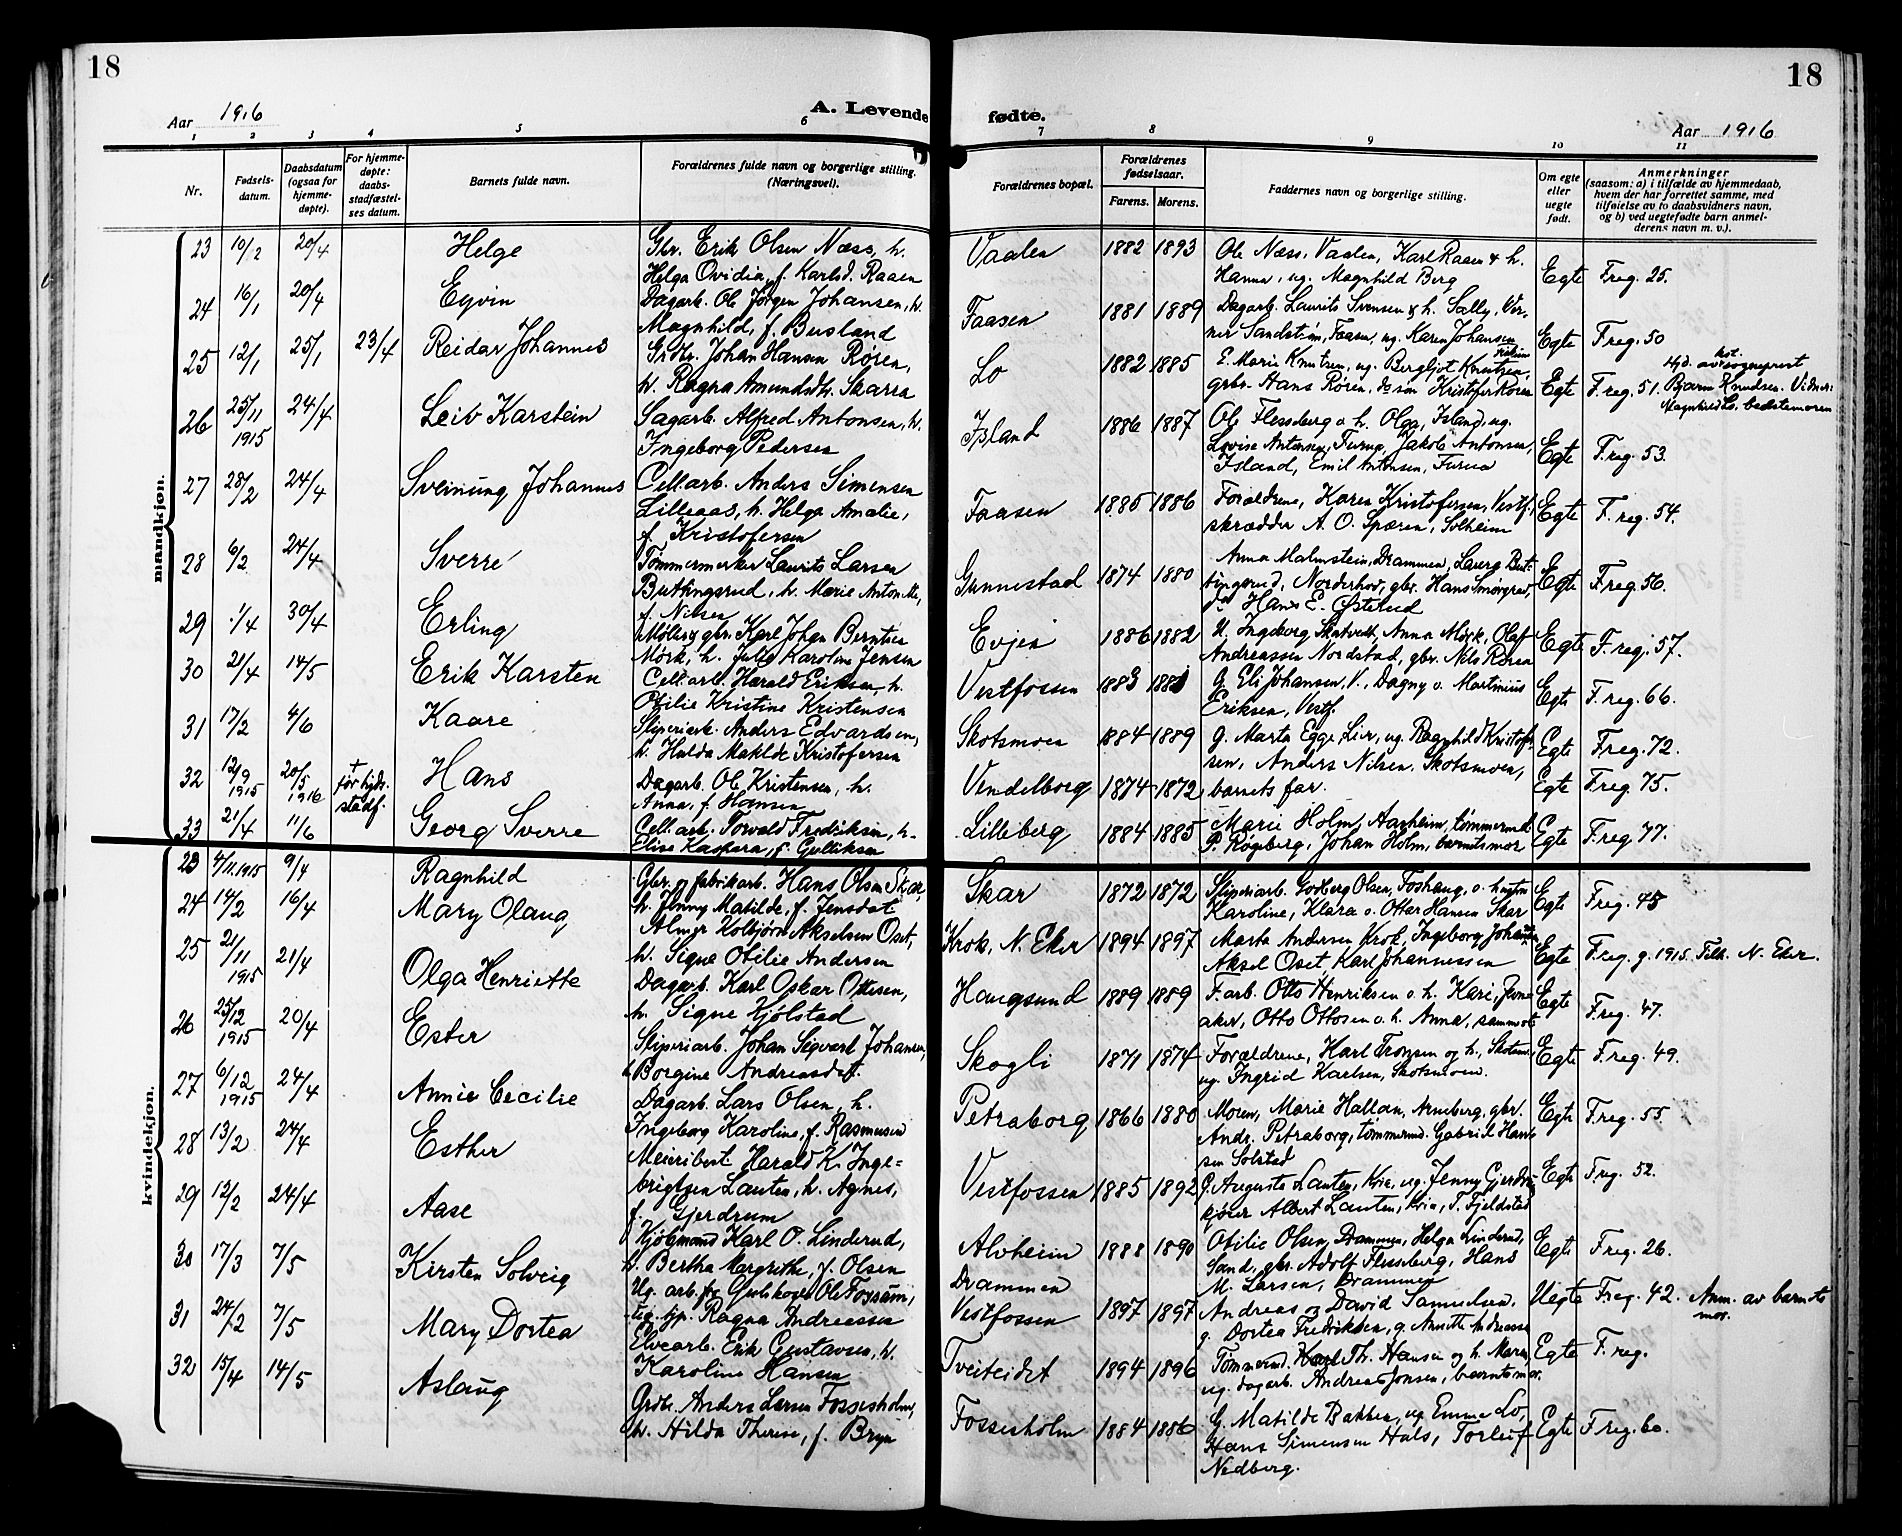 18
18
Aar 1916
A. Levende fødte.
Aar 1916
1 2 3 4 5 6 7 8 9 10 11
Nr.
Fødsels-
datum.
Daabsdatum
(ogsaa for
hjemme-
døpte).
For hjemme-
døpte:
daabs-
stadfæstel-
ses datum.
Barnets fulde navn.
Forældrenes fulde navn og borgerlige stilling.
(Næringsvei).
Forældrenes bopæl.
Forældrenes
fødselsaar.
Farens. Morens.
Faddernes navn og borgerlige stilling.
Om egte
eller
uegte
født.
Anmerkninger
(saasom: a) i tilfælde av hjemmedaab,
hvem der har forrettet samme, med
tilføielse av to daabsvidners navn,
og b) ved uegtefødte barn anmel-
derens navn m. v.).
mandkjøn.
23 10/2 20/4 Helge Gbr. Erik Olsen Næss, h. Vaalen 1882 1893 Ole Næss, Vaalen, Karl Raaen & h.
Helga Ovidia, f. Karlsd. Raaen Hanna, ug. Magnhild Berg Egte F.reg. 25.
24 16/1 20/4 Eyvin Dagarb. Ole Jørgen Johansen, h. Faasen 1881 1889 Dagarb. Laurits Svensen & h. Sally, Ver-
Magnhild, f. Busland ner Sandstein, Faasen, ug. Karen Johansen Egte F.reg. 50
25 12/1 25/1 23/4 Reidar Johannes Grdbr. Johan Hansen Røren, Lo 1882 1885 E. Marie Knutsen, ug. Bergljot Knutsen, Hjd. av sogneprest
h. Ragna Amundsdtr. Skarra grbr. Hans Røren, søn Kristofer Røren Egte F.reg. 51. Bjarne Knudsen. Vidner:
Magnhild Lo, bedstemoren
26 25/11 1915 24/4 Leiv Karstein Sagarb. Alfred Antonsen, h. Island 1886 1887 Ole Flesseberg o h. Olga, Island, ug.
Ingeborg Pedersen Lovise Antonsen, Furua, Jakob Antonsen, Egte F.reg. 53.
Island, Emil Antonsen, Furua
27 28/2 24/4 Sveinung Johannes Cell.arb. Anders Simensen Faasen 1885 1886 Forældrene, Karen Kristofersen, Vestf.,
Lilleaas, h. Helga Amalie, skrædder A. O. Spæren, Solheim Egte F. reg. 54.
f. Kristofersen
28 6/2 24/4 Sverre Tømmermerker Laurits Larsen Gunnestad 1874 1880 Anna Malmstein, Drammen, Laurg But-
Buttingsrud, h. Marie Antonette, tingsrud, Norderhov, gbr. Hans Smørgrav, Egte F.reg. 56.
f. Nilsen Hans E. Østerud
29 1/4 30/4 Erling Møller & gbr. Karl Johan Berntsen Evjen 1886 1882 U. Ingeborg Skatvedt, Anna Mørk, Olaf
Mørk, h. Julie Karoline Jensen Andreassen Nordstad, gbr. Nils Røren Egte F. reg. 57.
30 21/4 14/5 Erik Karsten Cell.arb. Harald Eriksen, h. Vestfossen 1883 1881 G. Eli Johansen, V., Dagny o. Martinius
Otilie Kristine Kristensen Eriksen, Vestf. Egte F.reg. 66.
31 17/2 4/6 Kaare Sliperiarb. Anders Edvardsen, Skotsmoen 1884 1889 g. Marta Egge, Lier, ug. Ragnhild Kristofer-
h. Hulda Makilde Kristofersen sen, Anders Nilsen, Skotsmoen, Egte F.reg. 72.
32 12/9 1915 20/5 1916 + før hjds. stadf. Hans Dagarb. Ole Kristensen, h. Vendelborg 1874 1872 barnets far. Egte F.reg. 75.
Anna, f. Hansen
33 21/4 11/6 Georg Sverre Cell.arb. Torvald Fredriksen, h. Lilleberg 1884 1885 Marie Holm, Aasheim, tømmermd.
Elise Kaspara, f. Gulliksen P. Røgeberg, Johan Holm, barnets mor Egte F.reg 77.
kvindekjøn.
23 4/11.1915 9/4 Ragnhild Gbr. og fabrikarb. Hans Olsen Skar, Skar 1872 1872 Sliperiarb. Godberg Olsen, Foshaug, o. hustru
h. Jenny Matilde, f. Jensdat. Karoline, Klara o. Ottar Hansen Skar Egte F.reg. 45
24 14/2 16/4 Mary Olaug Almer Kolbjørn Akselsen Oset, Krok, N. Eker 1894 1897 Marta Andersen Krok, Ingeborg Johansen,
h. Signe Otilie Andersen Aksel Oset, Karl Johannessen Egte F.reg. g. 1915. Tilh. N. Eker.
25 21/11 1915 21/4 Olga Henriette Dagarb. Karl Oskar Ottesen, Haugsund 1889 1889 F.arb. Otto Henriksen o. h. Kari, Jarne-
h. Signe Kjølstad aker, Otto Ottosen o. h. Anna, sammest. Egte F.reg. 47.
26 25/12 1915 20/4 Ester Sliperiarb. Johan Sigvart Johansen, Skogli 1871 1874 Forældrene, Karl Tronsen og h., Skotsm.,
Borgine Andreasdt. ug. Ingrid Karlsen, Skotsmoen. Egte F.reg. 49.
27 6/12 1915 24/4 Annie Cecilie Dagarb. Lars Olsen, h. Petraborg 1866 1880 Moren, Marie Hallan, Arneberg, gbr.
Ingeborg Karoline, f. Rasmussen Andr. Petraborg, tømmermd. Gabriel Han- Egte F.reg. 55.
sen Solstad
28 13/2 24/4 Esther Meieribest. Harald K. Inge-
brigtsen Lauten, h. Agnes, Vestfossen 1885 1892 G. Augusta Lauten, Kria, ug. Jenny Gjerdrum, Egte F.reg. 52.
f. Gjerdrum kjører Albert Lauten, Kria, T. Fjeldstad
29 12/2 24/4 Aase Kjøbmand Karl O. Linderud, Alvheim 1888 1890 Otilie Olsen, Drammen, Helga Linderud,
h. Bertha Margrethe, f. Olsen Sand, gbr. Adolf Flesseberg, Hans Egte F.reg. 26.
M. Larsen, Drammen
30 17/3 7/5 Kirsten Solveig Ug. arb. fra Gulskogen Ole Fossum, Drammen
ug. tjp. Ragna Andreassen Vestfossen 1897 1897 Andreas og David Samuelsen, Uegte F.reg. 42. Anm. av barnets mor.
g. Dortea Fredriksen, g. Annette Andreassen
31 24/2 7/5 Mary Dortea Elvearb. Erik Gustavsen, h. Tveiteidet 1894 1896 Tømmermd. Karl Th. Hansen og h. Maren, Egte F. reg.
Karoline Hansen ug. dagarb. Andreas Jonsen, barnets mor.
32 15/4 14/5 Aslaug Grdbr. Anders Larsen Fossesholm, Fossesholm 1884 1886 G. Matilde Bakken, ug. Emma Lo,
h. Hilda Therese, f. Bryn Hans Simensen Hals, Torleif Egte F.reg. 60.
Nedberg.